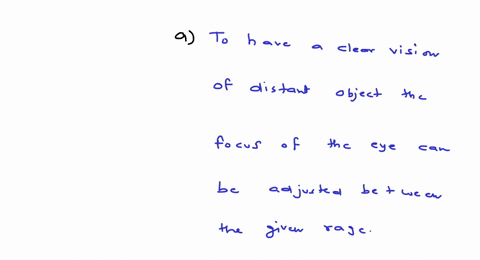 a) To have a clear vision
of distant object the
focus of the eye can
be adjusted between
the given rage.